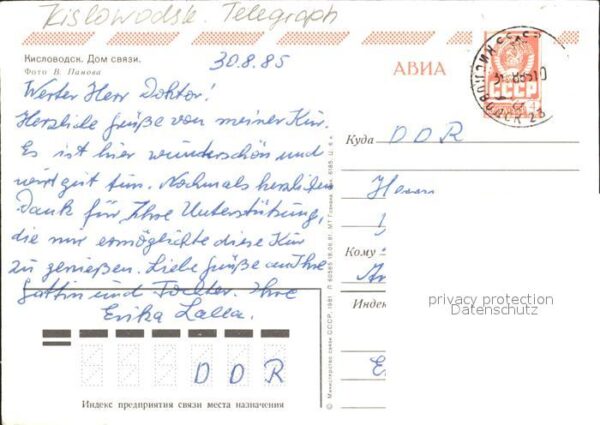 Kislowodsk. Telegraph
Кисловодск. Дом связи.
Фото В. Панова
30.8.85
АВИА
СССР
Werter Herr Doktor!
Herzliche Grüße von meiner Kur.
Es ist hier wunderschön und
wird gut tun. Nochmals herzlichen
Dank für Ihre Unterstützung,
die mir ermöglichte diese Kur
zu genießen. Liebe Grüße an Ihre
Gattin und Tochter. Ihre
Erika Lalla.
Куда DDR
Herrn
Кому
Индекс
privacy protection
Datenschutz
DDR
Индекс предприятия связи места назначения
© Министерство связи СССР, 1981